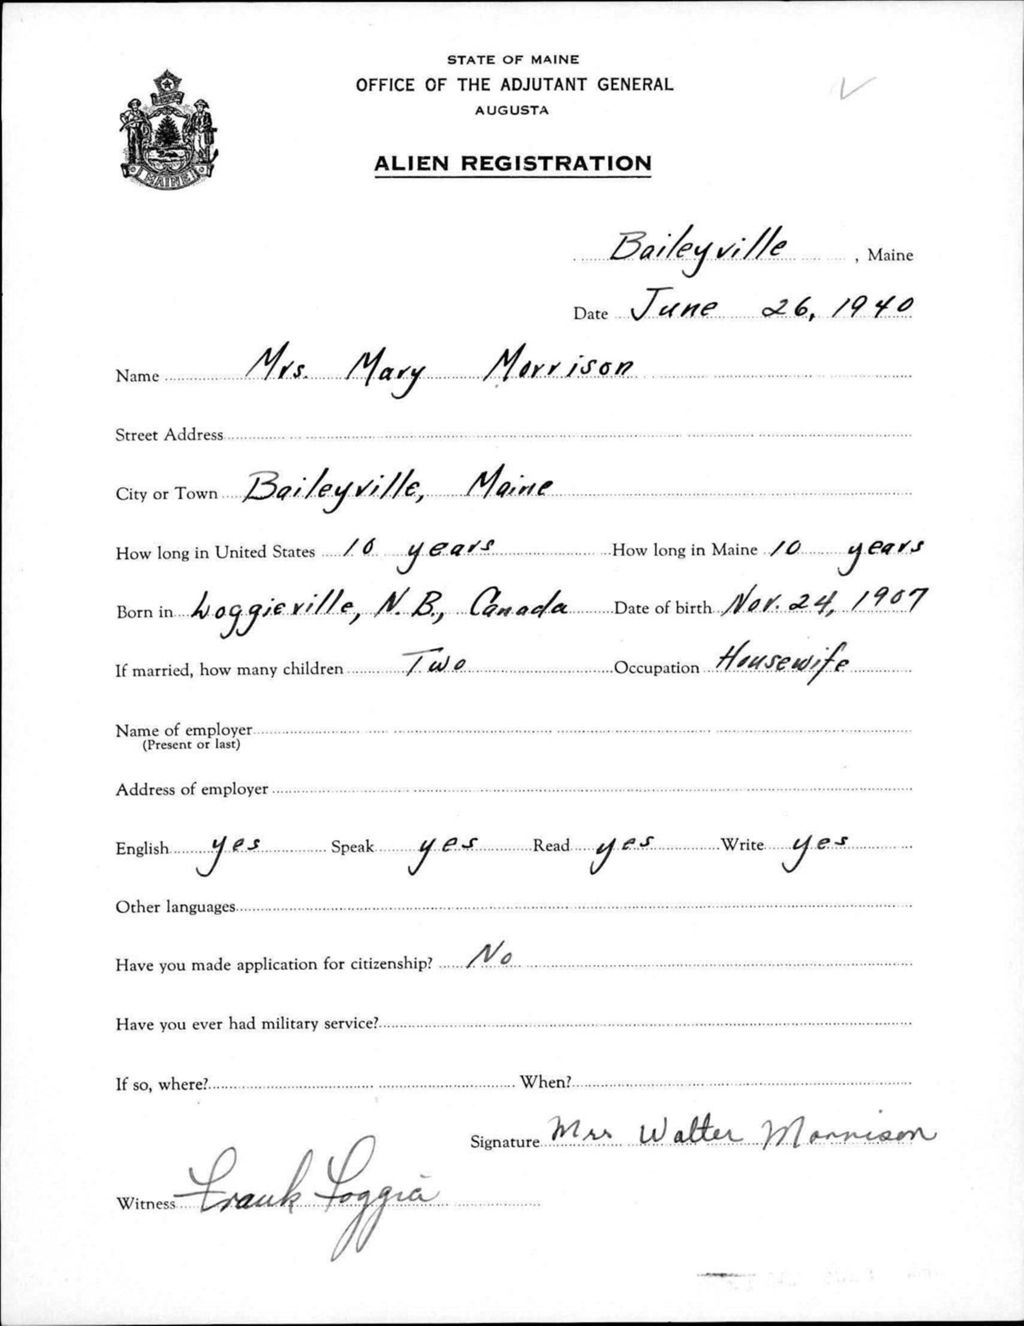 STATE OF MAINE
OFFICE OF THE ADJUTANT GENERAL
AUGUSTA
ALIEN REGISTRATION
MAINE
Baileyville, Maine
Date June 26, 1940
Name Mrs. Mary Morrison
Street Address
City or Town Baileyville, Maine
How long in United States 10 years How long in Maine 10 years
Born in Loggieville, N.B., Canada Date of birth Nov. 24, 1907
If married, how many children Two Occupation Housewife
Name of employer
(Present or last)
Address of employer
English yes Speak yes Read yes Write yes
Other languages
Have you made application for citizenship? No
Have you ever had military service?
If so, where? When?
Signature Mrs Walter Morrison
Witness Frank Loggia